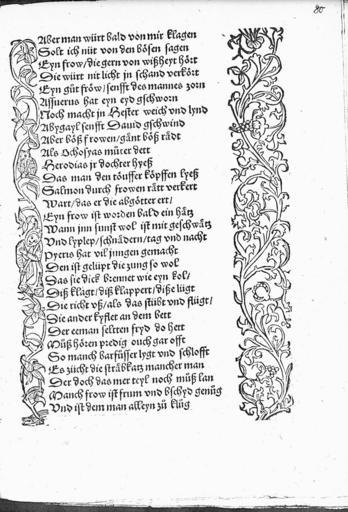 80
Aber man würt bald von mir klagen
Solt ich nüt von den bösen sagen
Eyn frow/die gern von wißheyt hört
Die würt nit licht jn schand verkört
Eyn gůt frow/senfft des mannes zorn
Assuerus hat eyn eyd gschworn
Noch macht jn Hester weich vnd lynd
Abygayl senfft Dauid gschwind
Aber böß frowen/gänt böß rädt
Als Ochosyas můter dett
Herodias jr dochter hyeß
Das man den töuffer köpffen lyeß
Salmon durch frowen rätt verkert
Wart/das er die abgötter ert/
Eyn frow ist worden bald ein hätz
Wann jnn sunst wol ist mit geschwätz
Vnd lyplep/schnädern/tag vnd nacht
Pyeris hat vil jungen gemacht
Den ist gelüpt die zung so wol
Das sie dick brennet wie eyn kol/
Diß klagt/diß klappert/diße lügt
Die richt vß/als das stübt vnd flügt/
Die ander kyflet an dem bett
Der eeman seltten fryd do hett
Můß hören predig ouch gar offt
So manch barfůsser lygt vnd schlofft
Es zücht die sträbkatz mancher man
Der doch das mer teyl noch můß lan
Manch frow ist frum vnd bschyd genůg
Vnd ist dem man alleyn zů klůg